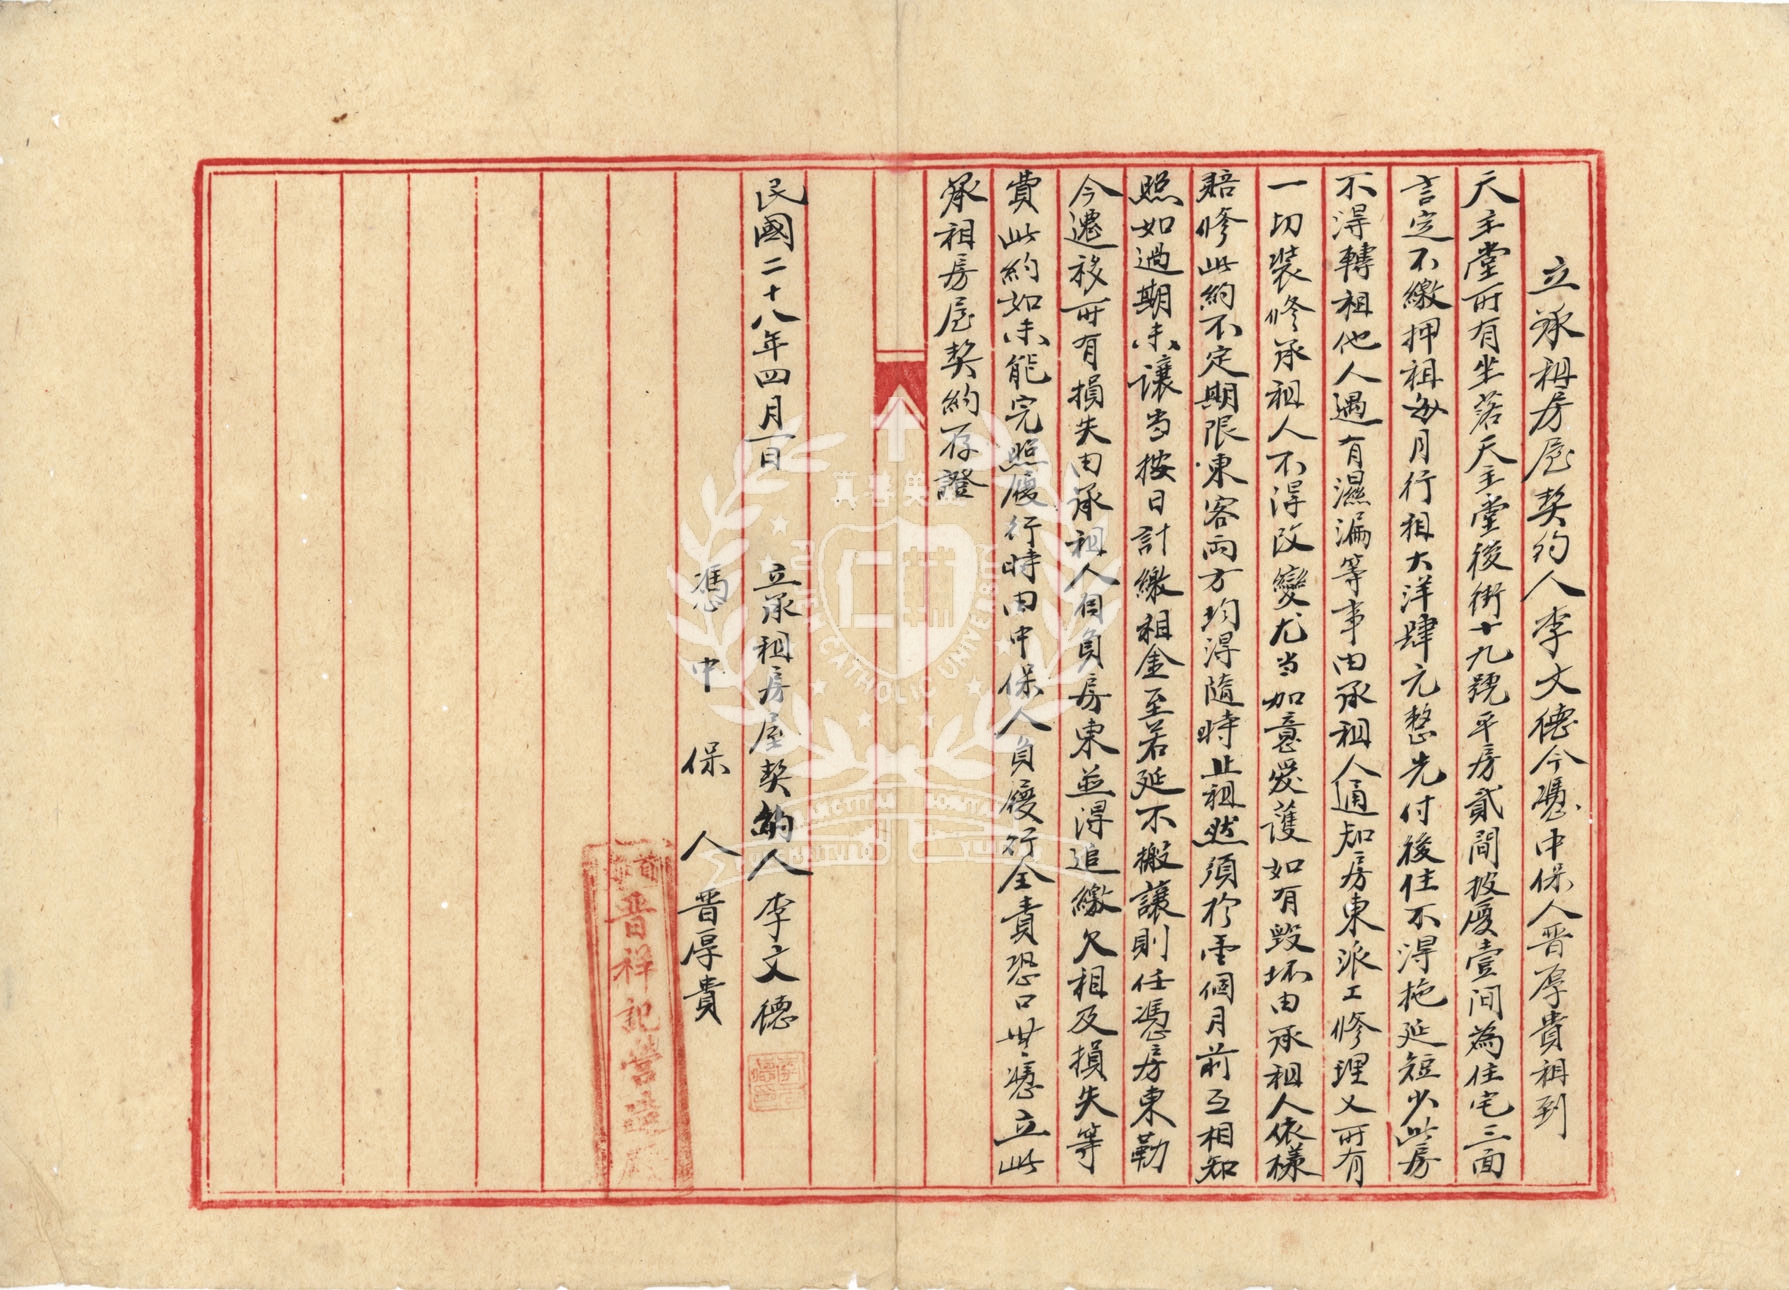 立承租房屋契約人李文德今憑中保人晋厚貴租到
天主堂所有坐落天主堂後街十九號平房貳間披廈壹間為住宅三面
言定不繳押租每月行租大洋肆元整先付後住不得拖延短少此房
不得轉租他人遇有濕漏等事由承租人通知房東派工修理又所有
一切裝修承租人不得改變尤当加意愛護如有毀坏由承租人依樣
賠修此約不定期限東客両方均得隨時止租然須於壱個月前互相知
照如過期未讓当按日計繳租金至若延不搬讓則任憑房東勒
令遷移所有損失由承租人自負房東並得追繳欠租及損失等
費此約如未能完照履行時由中保人負履行全責恐口無憑立此
承租房屋契約存證
民國二十八年四月一日 立承租房屋契約人李文德
憑中保人晋厚貴
晋祥記營造廠
真善美聖
FU JEN CATHOLIC UNIVERSITY